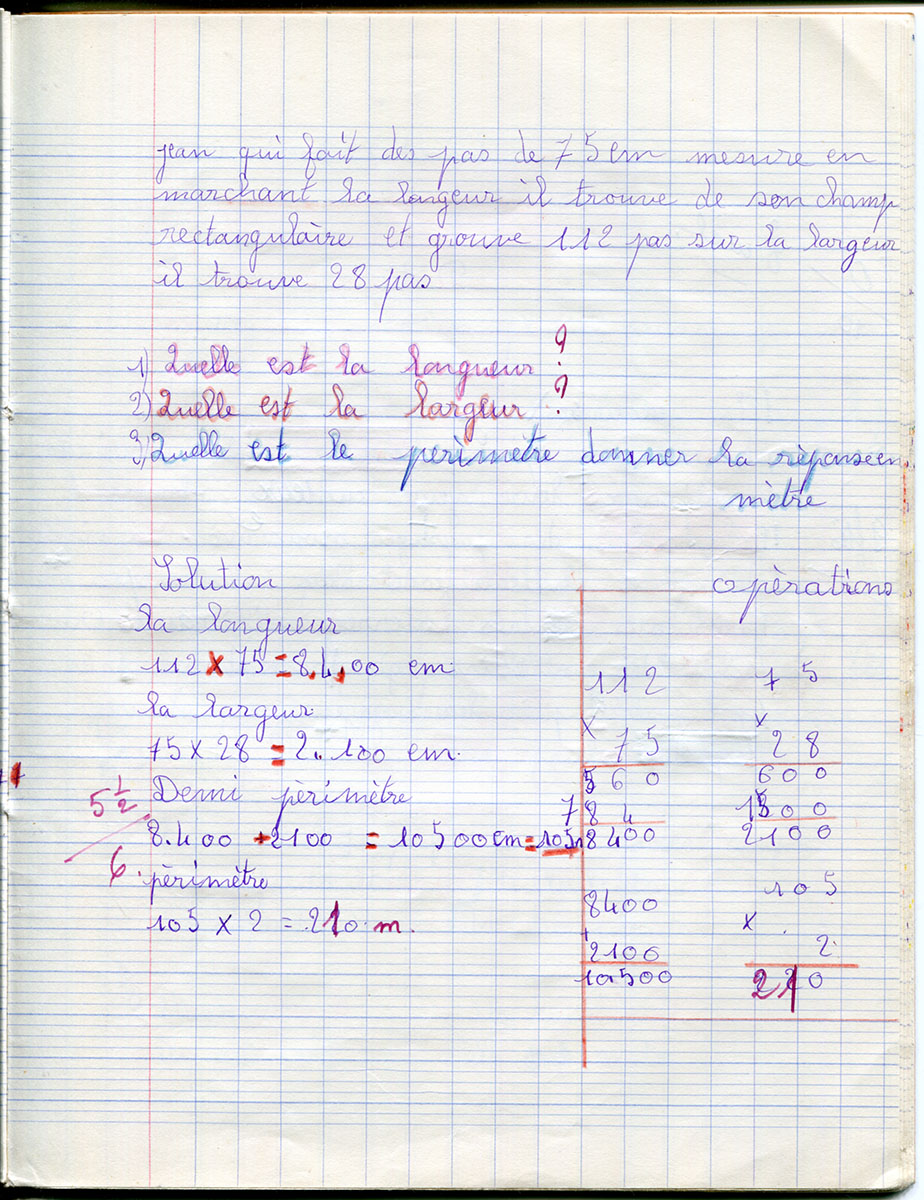 jean qui fait des pas de 75 cm mesure en
marchant la longeur il trouve de son champ
rectangulaire et grouve 112 pas sur la largeur
il trouve 28 pas
1) Quelle est la longueur ?
2) Quelle est la largeur ?
3) Quelle est le périmètre donner la réponse en
mètre
Solution
opèrations
la longueur
112 x 75 = 8.4.00 cm
la largeur
75 x 28 = 2.100 cm.
Demi pèrimètre
5 1/2
8.400 + 2100 = 10500 cm = 105m
6.
pèrimètre
105 x 2 = 210 m.
112
x 75
560
784
8400
75
x 28
600
1500
2100
8400
+
2100
10500
105
x
2
210